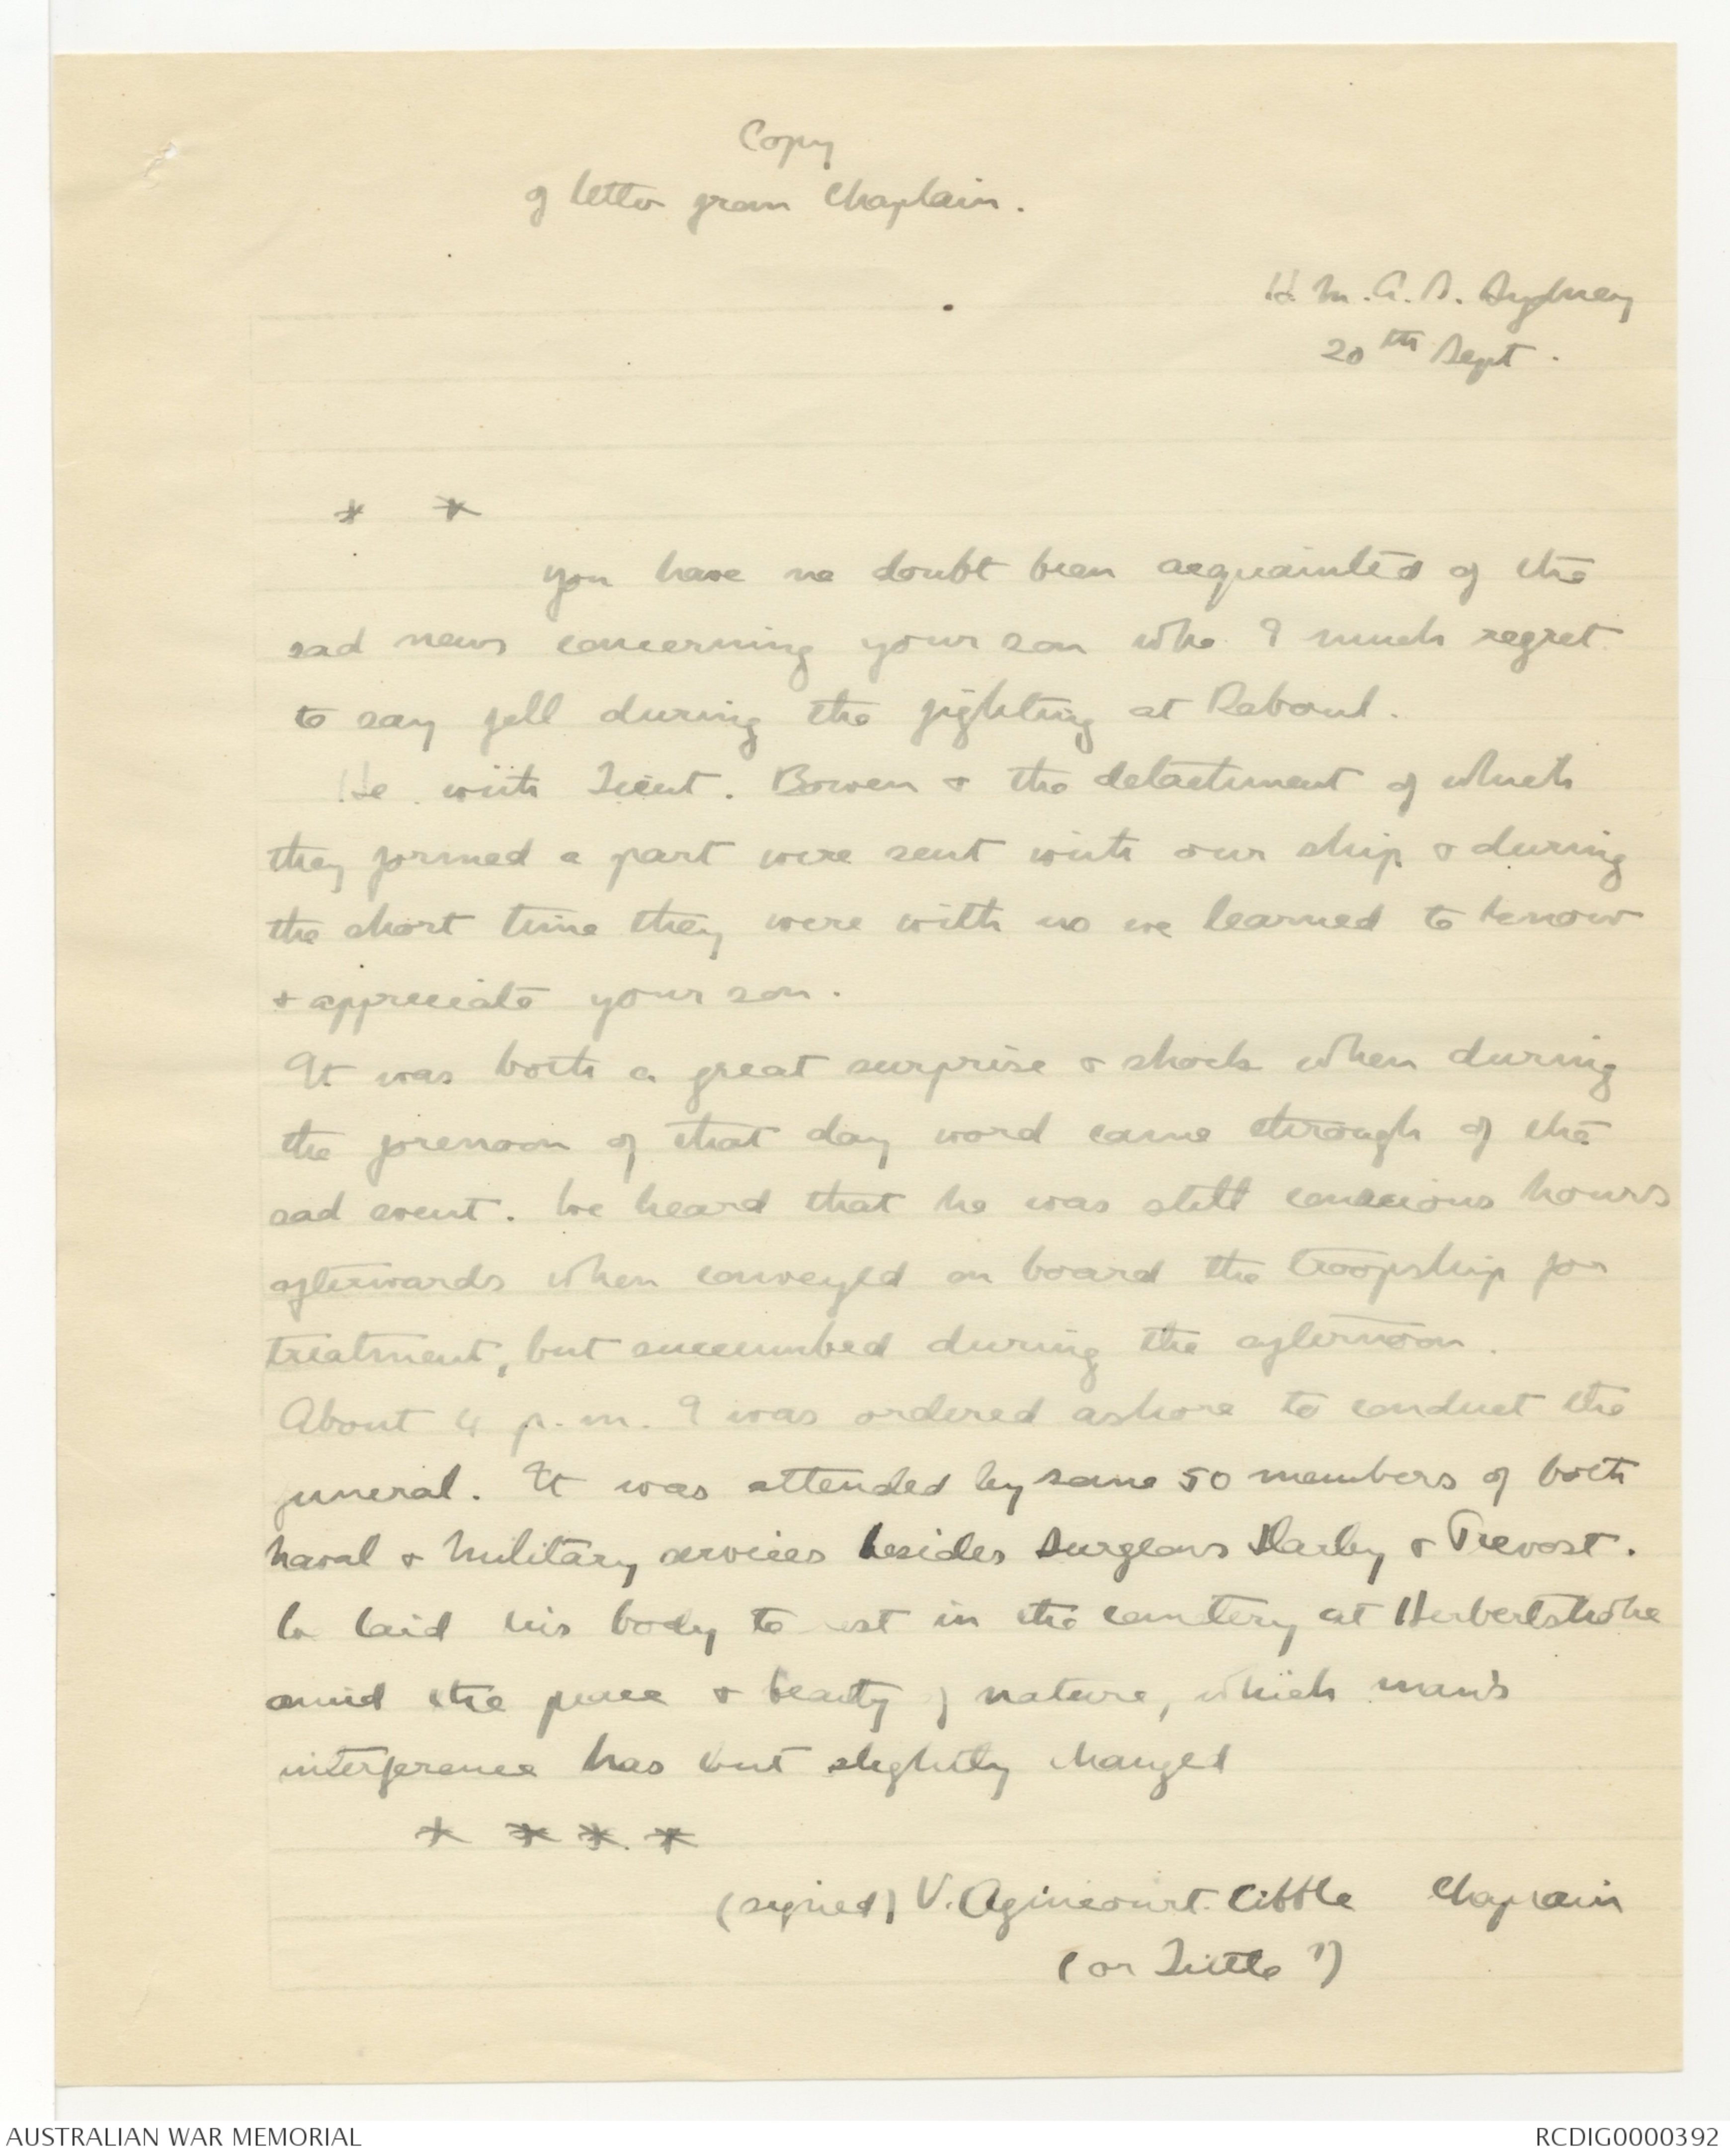 Copy
of letter from Chaplain.
H.M.A.S. Sydney
20th Sept.
* *
You have no doubt been acquainted of the
sad news concerning your son who I much regret
to say fell during the fighting at Raboul.
He with Lieut. Bowen & the detachment of which
they formed a part were sent with our ship & during
the short time they were with us we learned to know
& appreciate your son.
It was both a great surprise & shock when during
the forenoon of that day word came through of the
sad event. We heard that he was still conscious hours
afterwards when conveyed on board the troopship for
treatment, but succumbed during the afternoon.
About 4 p.m. I was ordered ashore to conduct the
funeral. It was attended by some 50 members of both
naval & military services besides Surgeons Darby & Trevost.
We laid his body to rest in the cemetery at Herbertshöhe
amid the peace & beauty of nature, which man's
interference has but slightly changed
* * * *
(signed) V. Agincourt. Cittle Chaplain
(or Little ?)
AUSTRALIAN WAR MEMORIAL
RCDIG0000392